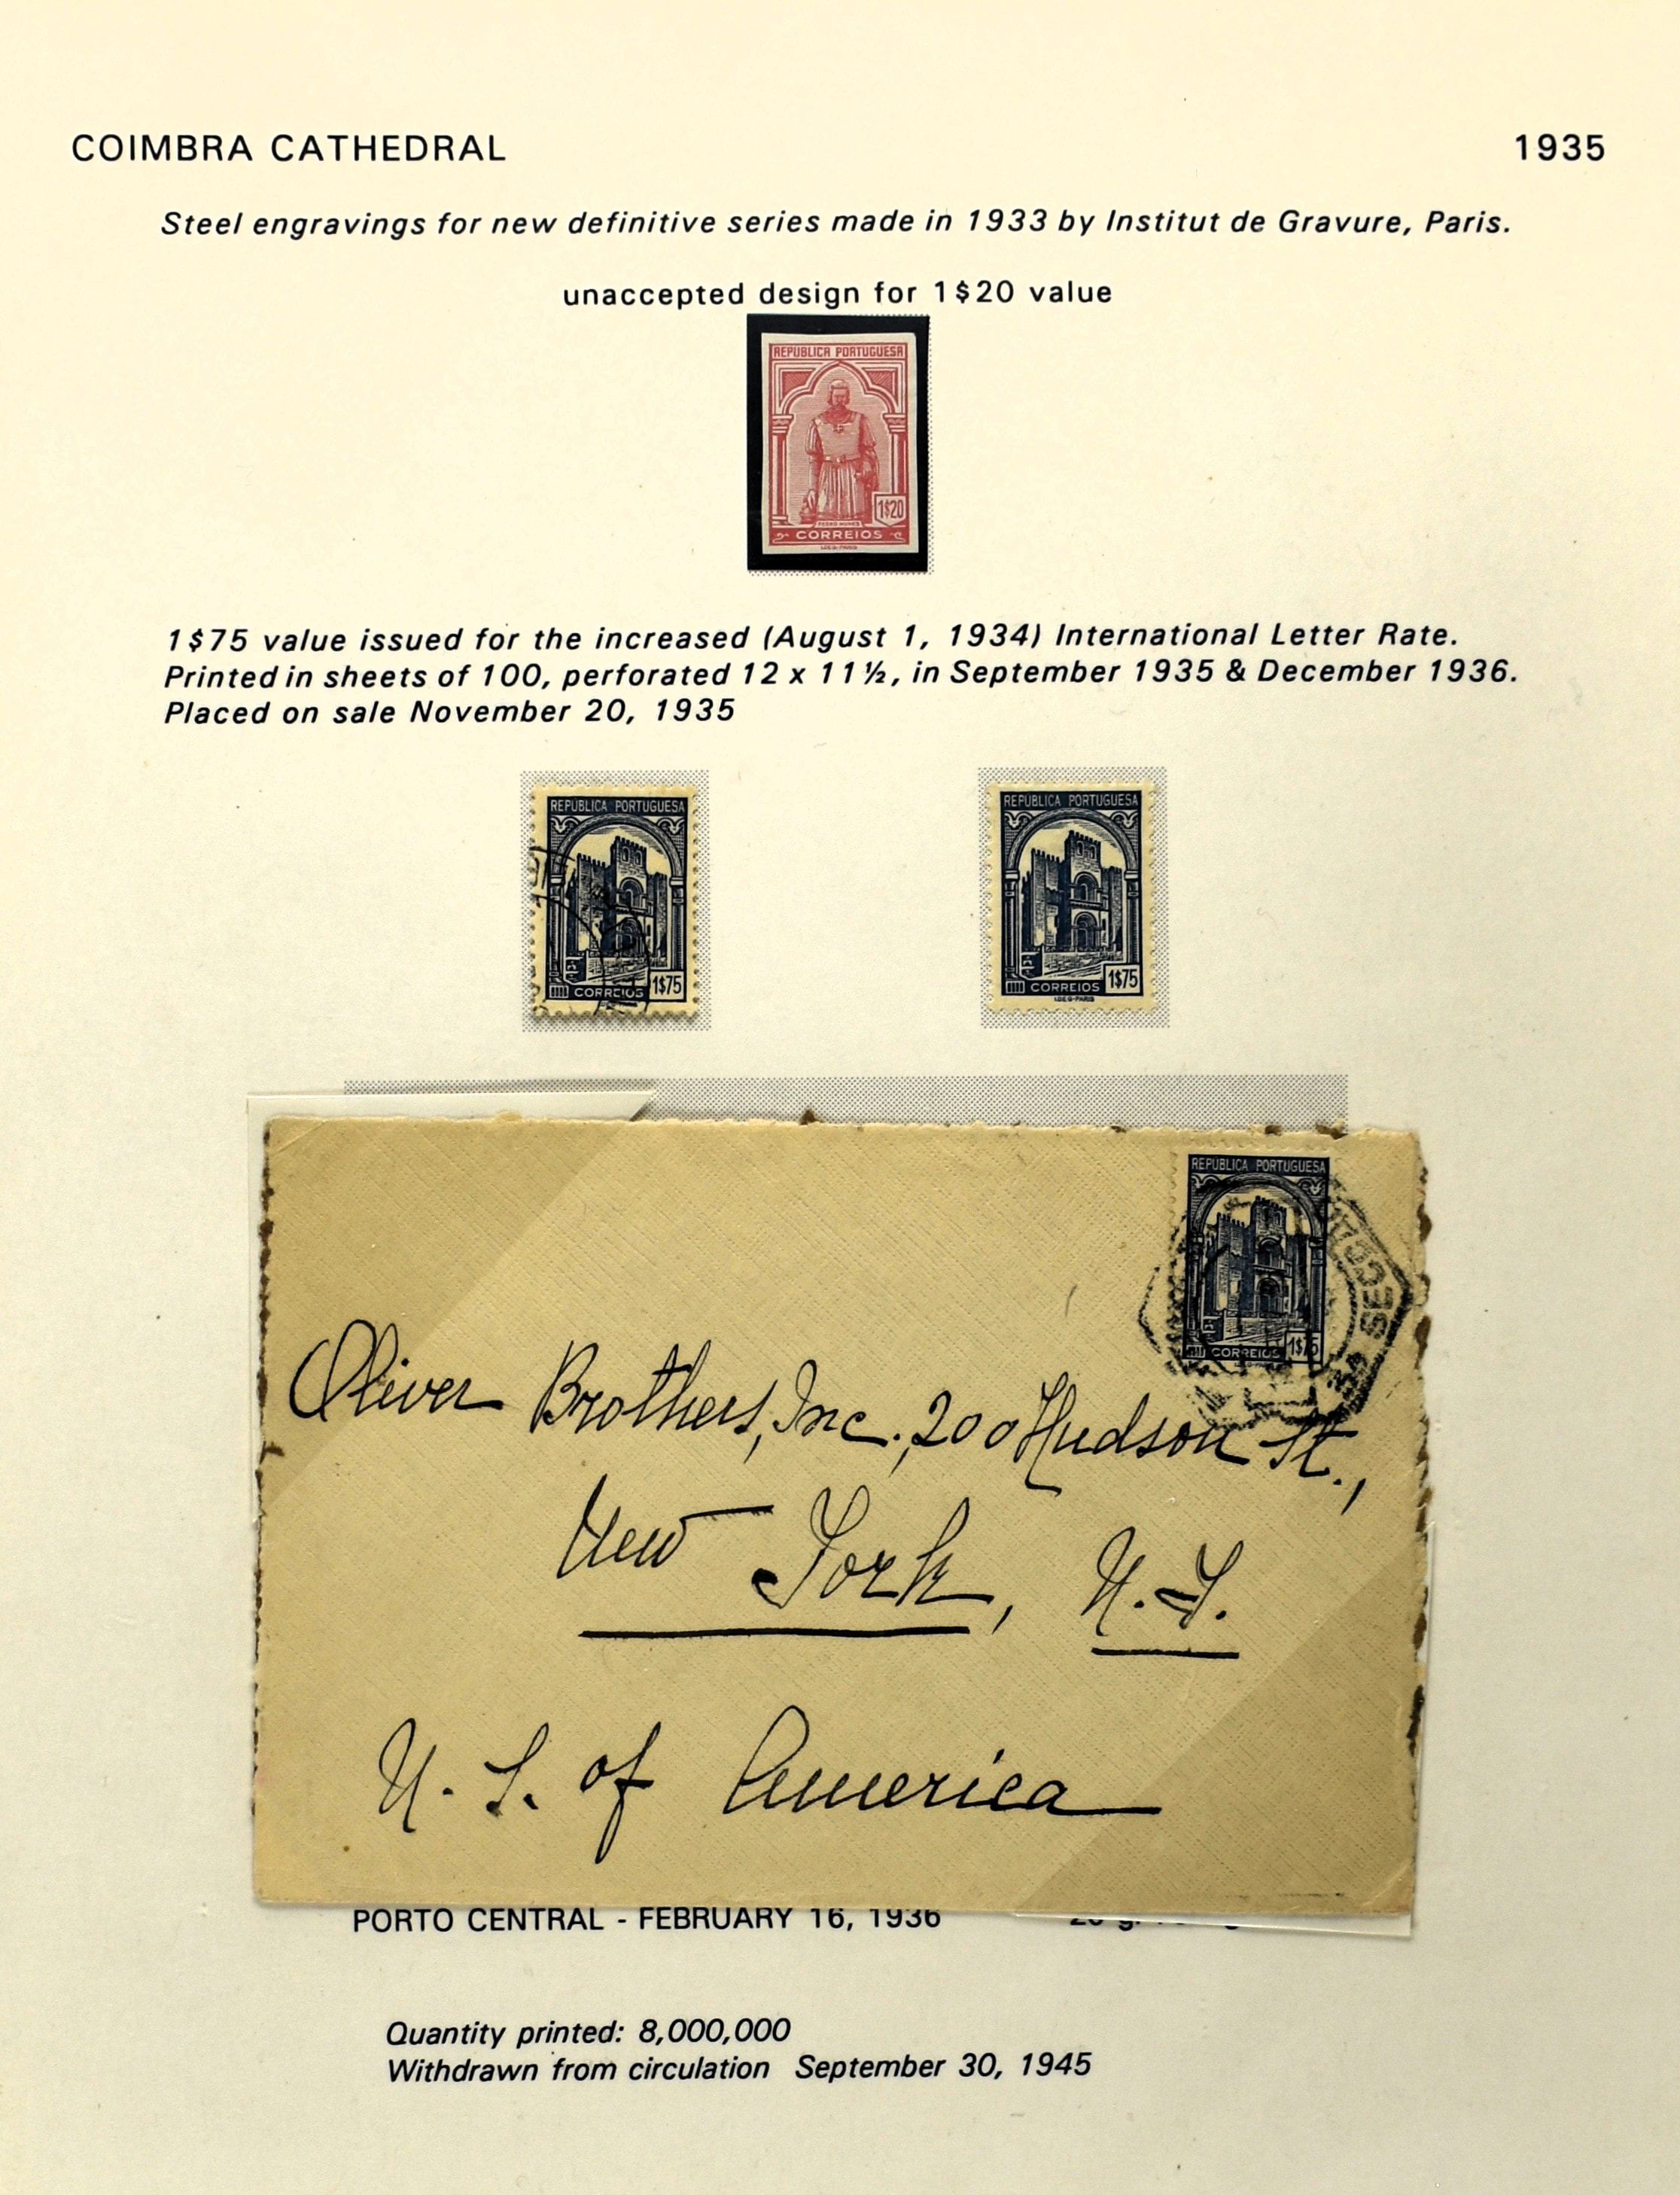 COIMBRA CATHEDRAL 1935
Steel engravings for new definitive series made in 1933 by Institut de Gravure, Paris.
unaccepted design for 1$20 value
REPUBLICA PORTUGUESA
1$20
PEDRO NUNES
CORREIOS
I.DE G-PARIS
1$75 value issued for the increased (August 1, 1934) International Letter Rate.
Printed in sheets of 100, perforated 12 x 11½, in September 1935 & December 1936.
Placed on sale November 20, 1935
REPÚBLICA PORTUGUESA
1$75
CORREIOS
REPÚBLICA PORTUGUESA
1$75
CORREIOS
I.DE G-PARIS
REPÚBLICA PORTUGUESA
1$75
CORREIOS
Oliver Brothers, Inc., 200 Hudson St.,
New York, N.Y.
U. S. of America
PORTO CENTRAL - FEBRUARY 16, 1936
Quantity printed: 8,000,000
Withdrawn from circulation September 30, 1945